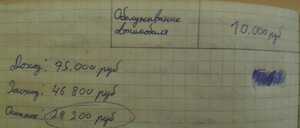 Обслуживание
автомобиля
10.000 руб
Доход: 95.000 руб
Расход: 46 800 руб
Остаток: 28 200 руб